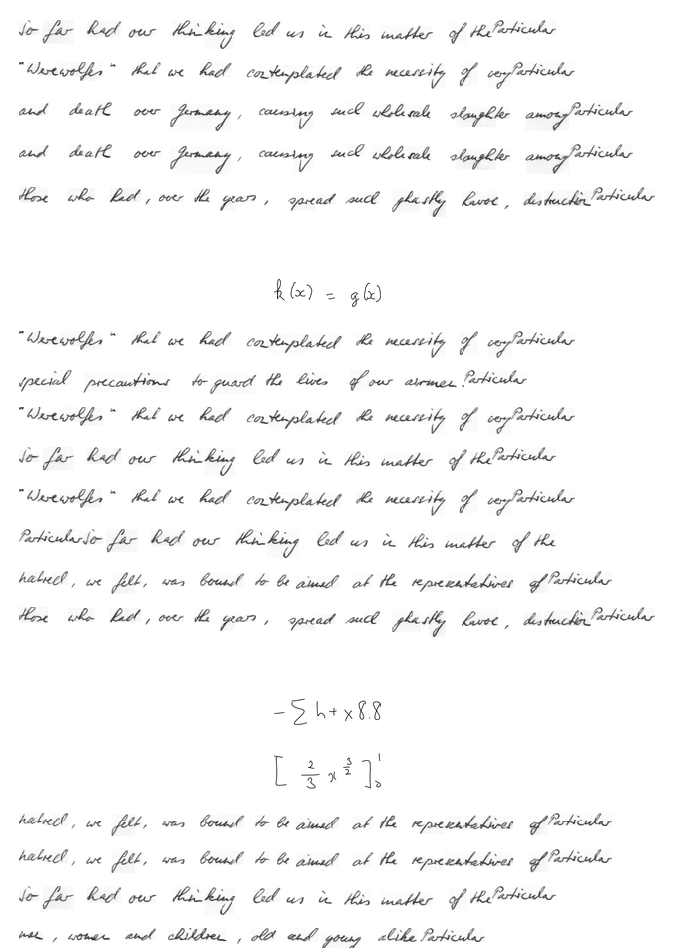 So far had our thinking led us in this matter of the Particular
"Werewolfes" that we had contemplated the necessity of very Particular
and death over Germany, causing such wholesale slaughter among Particular
and death over Germany, causing such wholesale slaughter among Particular
those who had, over the years, spread such ghastly havoc, destruction Particular
k(x) = g(x)
"Werewolfes" that we had contemplated the necessity of very Particular
special precautions to guard the lives of our airmen. Particular
"Werewolfes" that we had contemplated the necessity of very Particular
So far had our thinking led us in this matter of the Particular
"Werewolfes" that we had contemplated the necessity of very Particular
Particular So far had our thinking led us in this matter of the
hatred, we felt, was bound to be aimed at the representatives of Particular
those who had, over the years, spread such ghastly havoc, destruction Particular
- ∑ h + x 8.8
[ 2/3 x^(3/2) ]_0^1
hatred, we felt, was bound to be aimed at the representatives of Particular
hatred, we felt, was bound to be aimed at the representatives of Particular
So far had our thinking led us in this matter of the Particular
men, women and children, old and young alike Particular